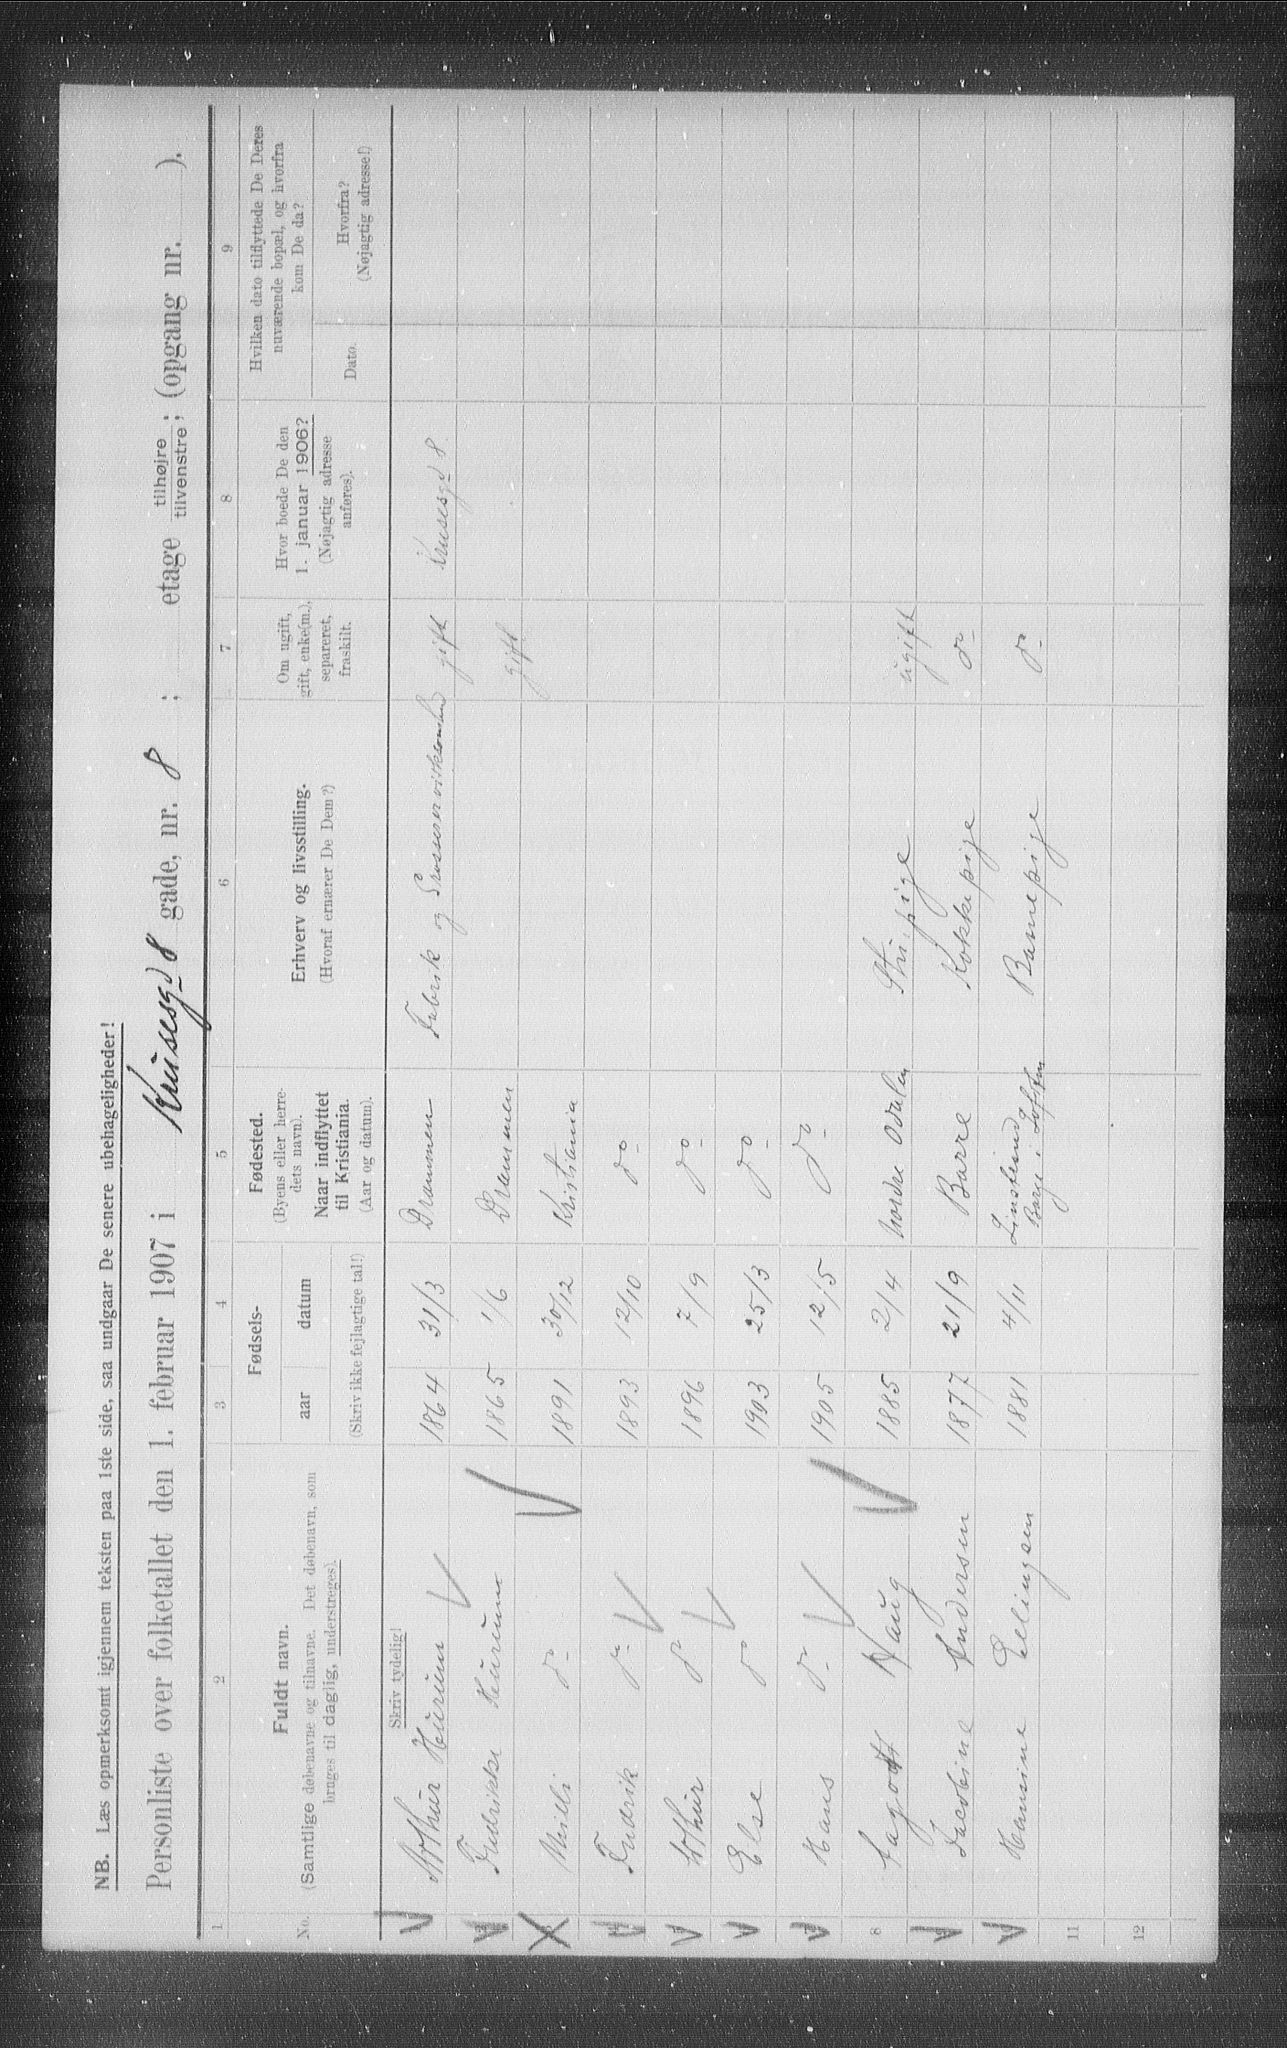 NB. Læs opmerksomt igjennem teksten paa 1ste side, saa undgaar De senere ubehageligheder!
Personliste over folketallet den 1. februar 1907 i Krusesgd 8 gade, nr. 8 ; etage tilhøjre tilvenstre ; (opgang nr. ).
1 2 3 4 5 6 7 8 9
No. Fuldt navn. (Samtlige døbenavne og tilnavne. Det døbenavn, som bruges til daglig, understreges).
Fødsels- aar datum
(Skriv ikke fejlagtige tal!)
Fødested. (Byens eller herredets navn). Naar indflyttet til Kristiania. (Aar og datum).
Erhverv og livsstilling. (Hvoraf ernærer De Dem?)
Om ugift, gift, enke(m.), separeret, fraskilt.
Hvor boede De den 1. januar 1906? (Nøjagtig adresse anføres).
Hvilken dato tilflyttede De Deres nuværende bopæl, og hvorfra kom De da?
Dato. Hvorfra? (Nøjagtig adresse!)
Skriv tydelig!
Arthur Hurum 1864 31/3 Drammen Fabrik og gift Krusesgd 8
Fredrikke Hurum 1865 1/6 Drammen gift
Milli do 1891 30/12 Kristiania
Fredrik do 1893 12/10 do
Arthur do 1896 7/9 do
Else do 1903 25/3 do
Hans do 1905 12/5 do
8 Haug 1885 2/4 Nordre Odalen pige ugift
Jacobine Andersen 1877 21/9 Borre Kokkepige do
Hansine Ellingsen 1881 4/11 Barnepige do
11
12